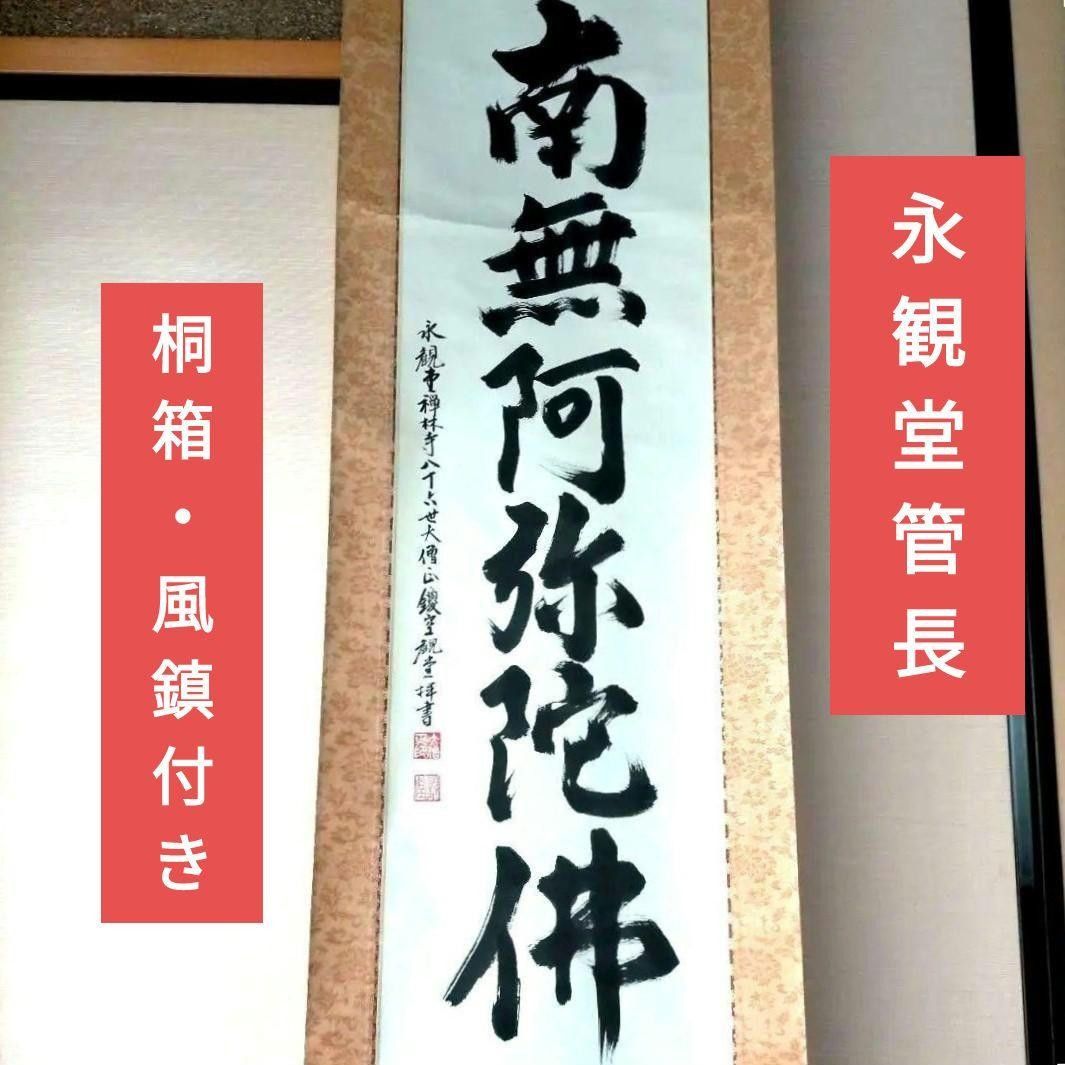 永観堂管長
南無阿弥陀佛
永觀堂禅林寺八十六世大僧正鑁空觀堂拝書
桐箱・風鎮付き